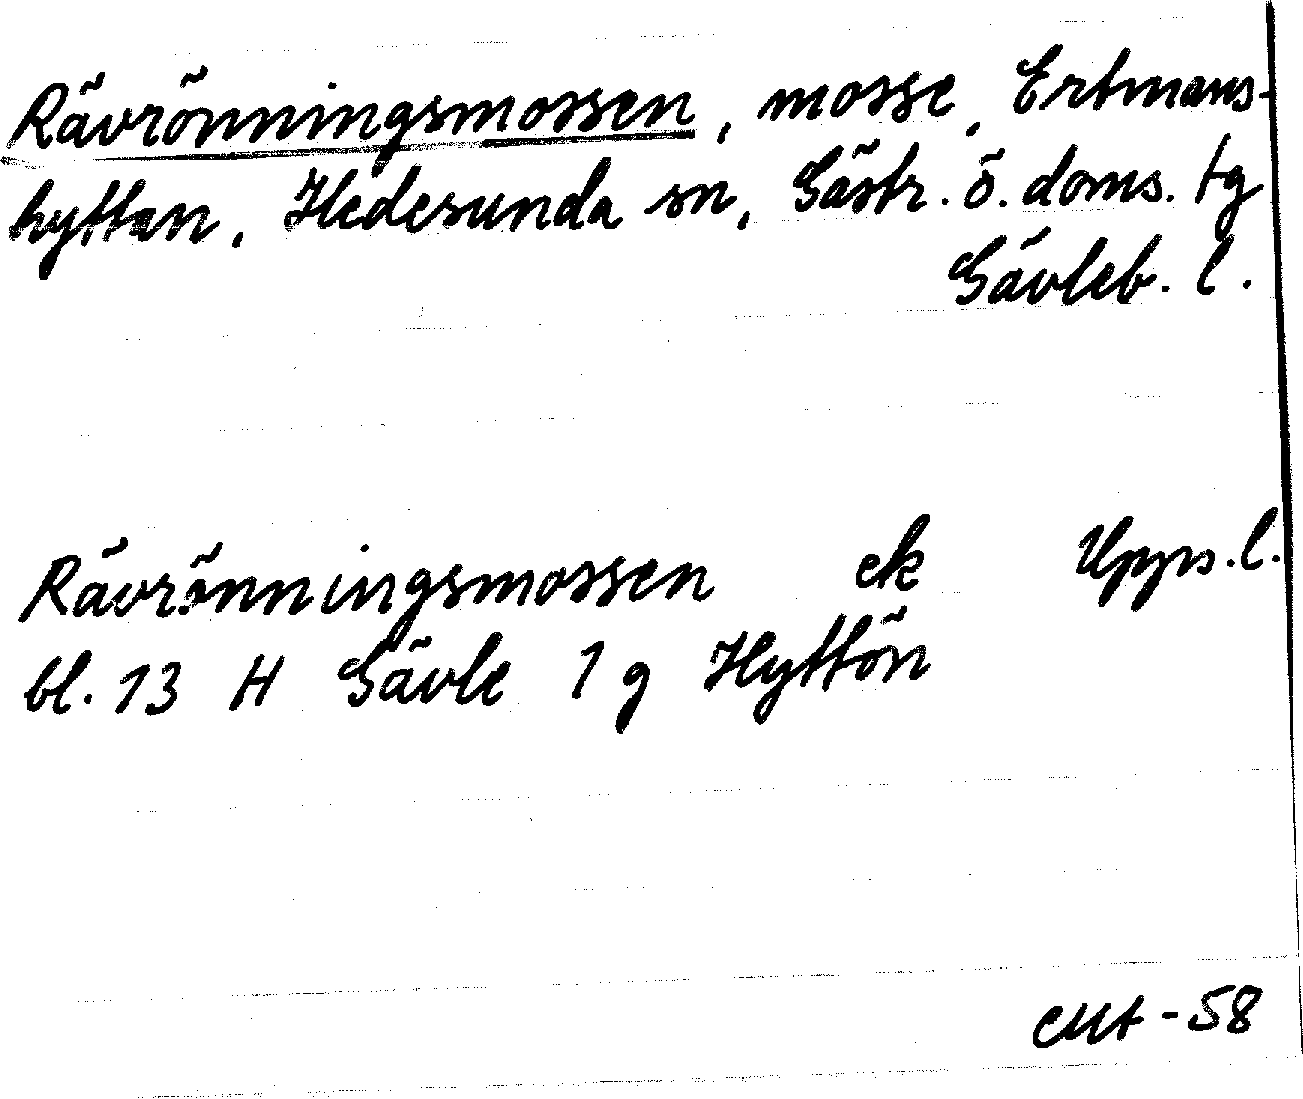 Rävrönningsmossen, mosse, Ertmans-
hyttan, Hedesunda sn, Gästr. ö. doms. tg
Gävleb. l.
Rävrönningsmossen ek Upps. l.
bl. 13 H Gävle 1 g Hyttön
-58